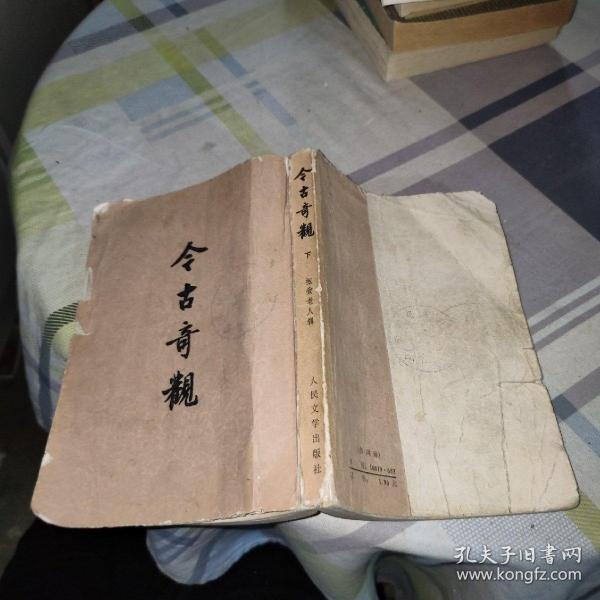 今古奇觀
今古奇觀
下
抱甕老人輯
人民文学出版社
10019·
孔夫子旧书网
www.kongfz.com